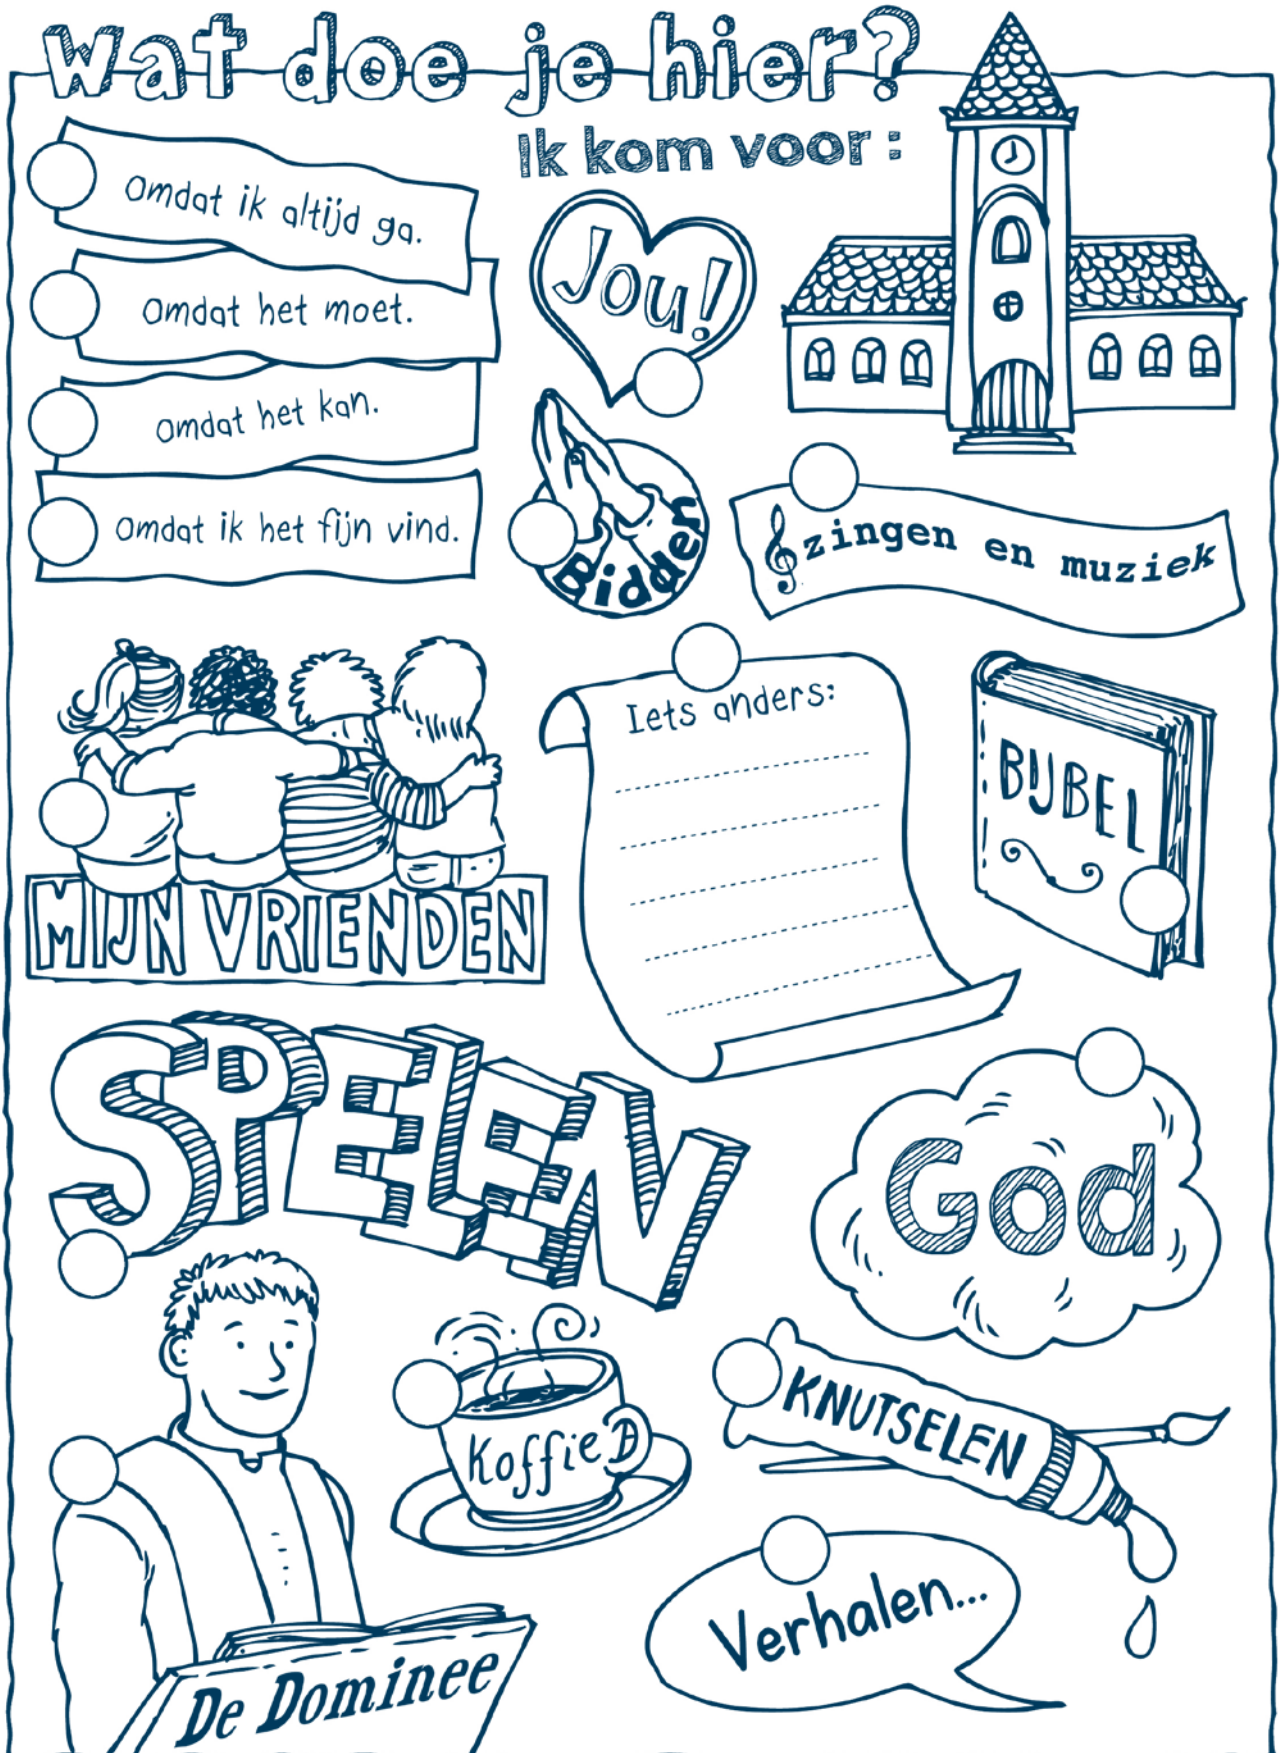 wat doe je hier?
Ik kom voor:
Omdat ik altijd ga.
Omdat het moet.
Omdat het kan.
Omdat ik het fijn vind.
Jou!
Bidden
zingen en muziek
MIJN VRIENDEN
Iets anders:
BIJBEL
SPELEN
God
Koffie
KNUTSELEN
De Dominee
Verhalen...